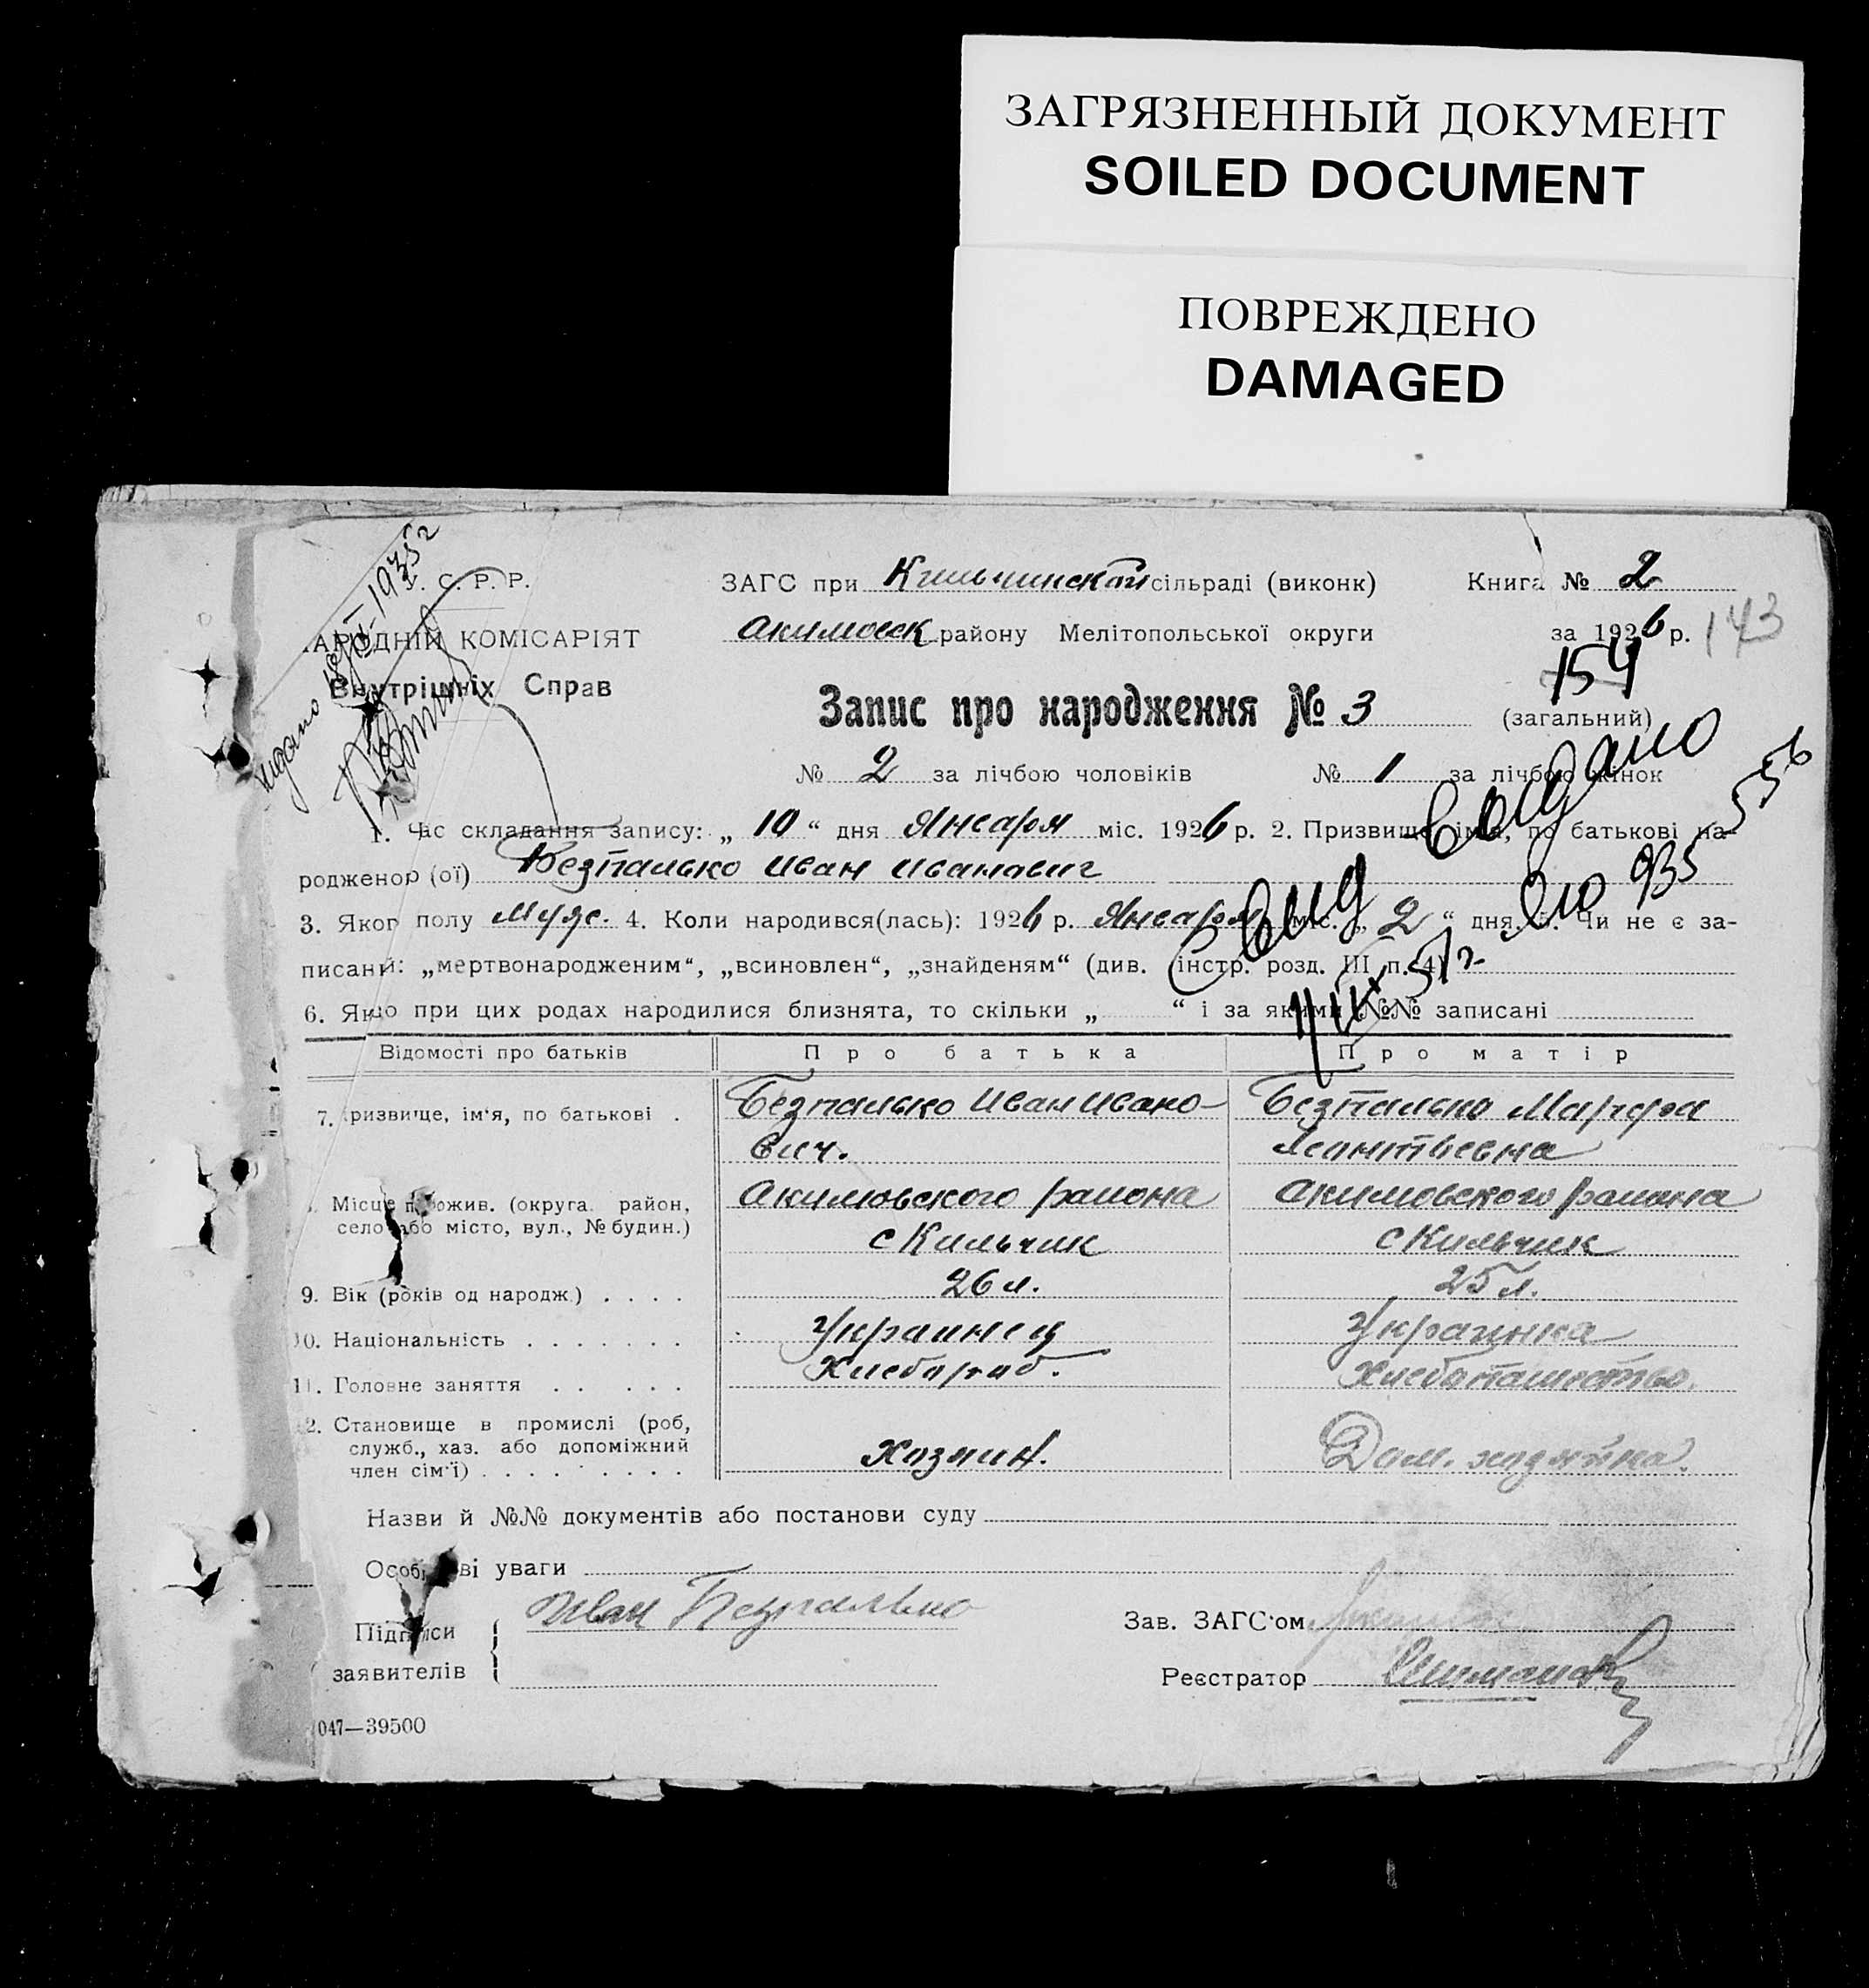 ЗАГРЯЗНЕННЫЙ ДОКУМЕНТ
SOILED DOCUMENT
ПОВРЕЖДЕНО
DAMAGED
С. Р. Р.
АРОДНІЙ КОМІСАРІЯТ
Внутрішніх Справ
видано 1935 г
ЗАГС при Кильчинской сільраді (виконк) Книга № 2
Акимовск району Мелітопольської округи за 1926 р. 143
154
Запис про народження № 3 (загальний)
№ 2 за лічбою чоловіків № 1 за лічбою жінок
1. Час складання запису: „ 10 “ дня Января міс. 1926 р. 2. Призвище, ім'я, по батькові на-
родженого (ої) Безпалько Иван Иванович
3. Якого полу Муж. 4. Коли народився(лась): 1926 р. Января міс. „ 2 “ дня. 5. Чи не є за-
писаний: „мертвонародженим“, „всиновлен“, „знайденям“ (див. інстр. розд. III п. 4)
6. Якщо при цих родах народилися близнята, то скільки „ “ і за якими №№ записані
Свид выдано
Відомості про батьків Про батька Про матір
7. ризвище, ім'я, по батькові . Безпалько Иван Ивано- Безпалько Марфа
вич. Леонтьевна
Місце прожив. (округа район, Акимовского района Акимовского района
село або місто, вул., № будин.) с Кильчик с Кильчик
9. Вік (років од народж.) . . . . 26 л. 25 л.
10. Національність . . . . . . . Украинец Украинка
11. Головне заняття . . . . . Хлебороб. Хлебопашество.
12. Становище в промислі (роб,
служб., хаз. або допоміжний
член сім'ї) . . . . . . . . . Хозяин. Дом. хозяйка.
Назви й №№ документів або постанови суду
Особливі уваги
Підписи Иван Безпалько Зав. ЗАГС'ом
заявителів Реєстратор
047—39500